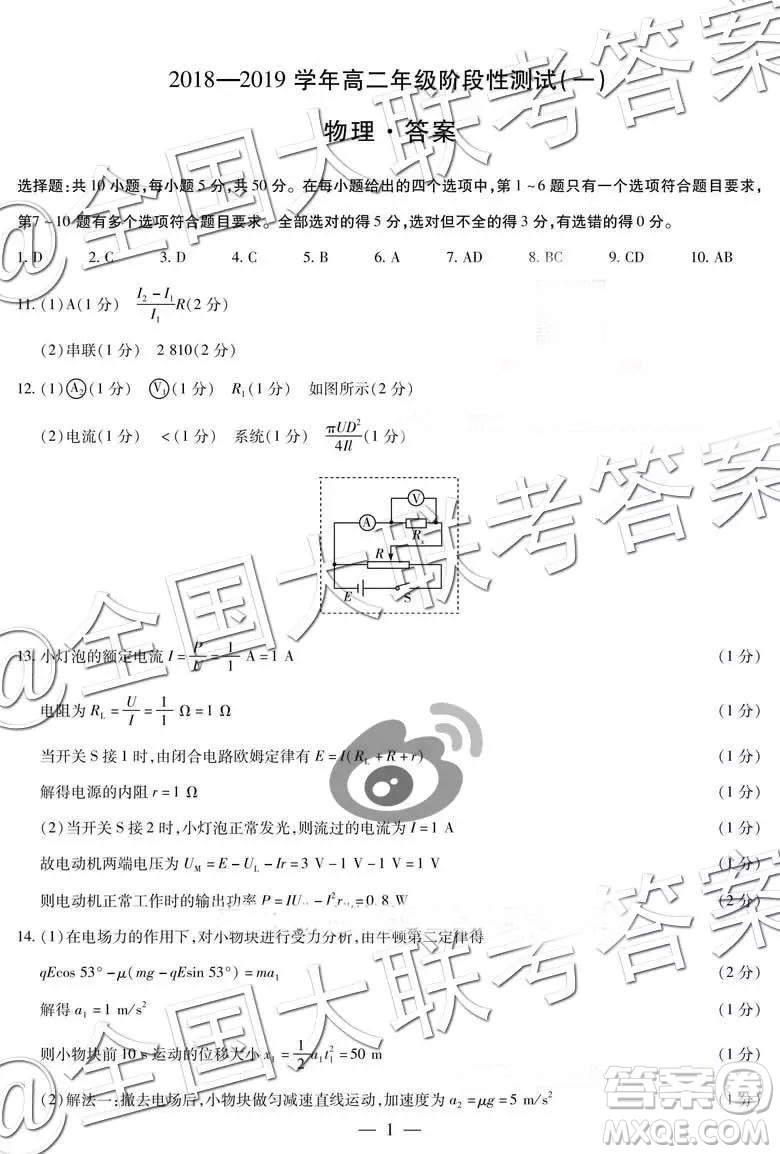 2018—2019 学年高二年级阶段性测试(一)
物理·答案
选择题:共10小题,每小题5分,共50分。在每小题给出的四个选项中,第1~6题只有一个选项符合题目要求,
第7~10题有多个选项符合题目要求。全部选对的得5分,选对但不全的得3分,有选错的得0分。
1. D 2. C 3. D 4. C 5. C 6. A 7. AD 8. BC 9. CD 10. AB
11. (1)A(1分) (I₂－I₁)/I₁ R(2分)
(2)串联(1分) 2 810(2分)
12. (1)Ⓐ₂(1分) Ⓥ₁(1分) R₁(1分) 如图所示(2分)
(2)电流(1分) <(1分) 系统(1分) πUD²/4Il(1分)
V
A
Rₓ
R
E
S
13. 小灯泡的额定电流 I = P/U = 1/1 A = 1 A (1分)
电阻为 R_L = U/I = 1/1 Ω = 1 Ω (1分)
当开关 S 接 1 时,由闭合电路欧姆定律有 E = I(R_L + R + r) (1分)
解得电源的内阻 r = 1 Ω (1分)
(2)当开关 S 接 2 时,小灯泡正常发光,则流过的电流为 I = 1 A (1分)
故电动机两端电压为 U_M = E－U_L－Ir = 3 V－1 V－1 V = 1 V (1分)
则电动机正常工作时的输出功率 P = IU －I²r = 0.8 W (2分)
14. (1)在电场力的作用下,对小物块进行受力分析,由牛顿第二定律得
qEcos 53°－μ(mg－qEsin 53°) = ma₁ (2分)
解得 a₁ = 1 m/s² (1分)
则小物块前 10 s 运动的位移大小 x₁ = 1/2 a₁t₁² = 50 m (1分)
(2)解法一:撤去电场后,小物块做匀减速直线运动,加速度为 a₂ = μg = 5 m/s² (1分)
— 1 —
@全国大联考答案
@全国大联考答案
@全国大联考答案
答案圈
MXQE.COM